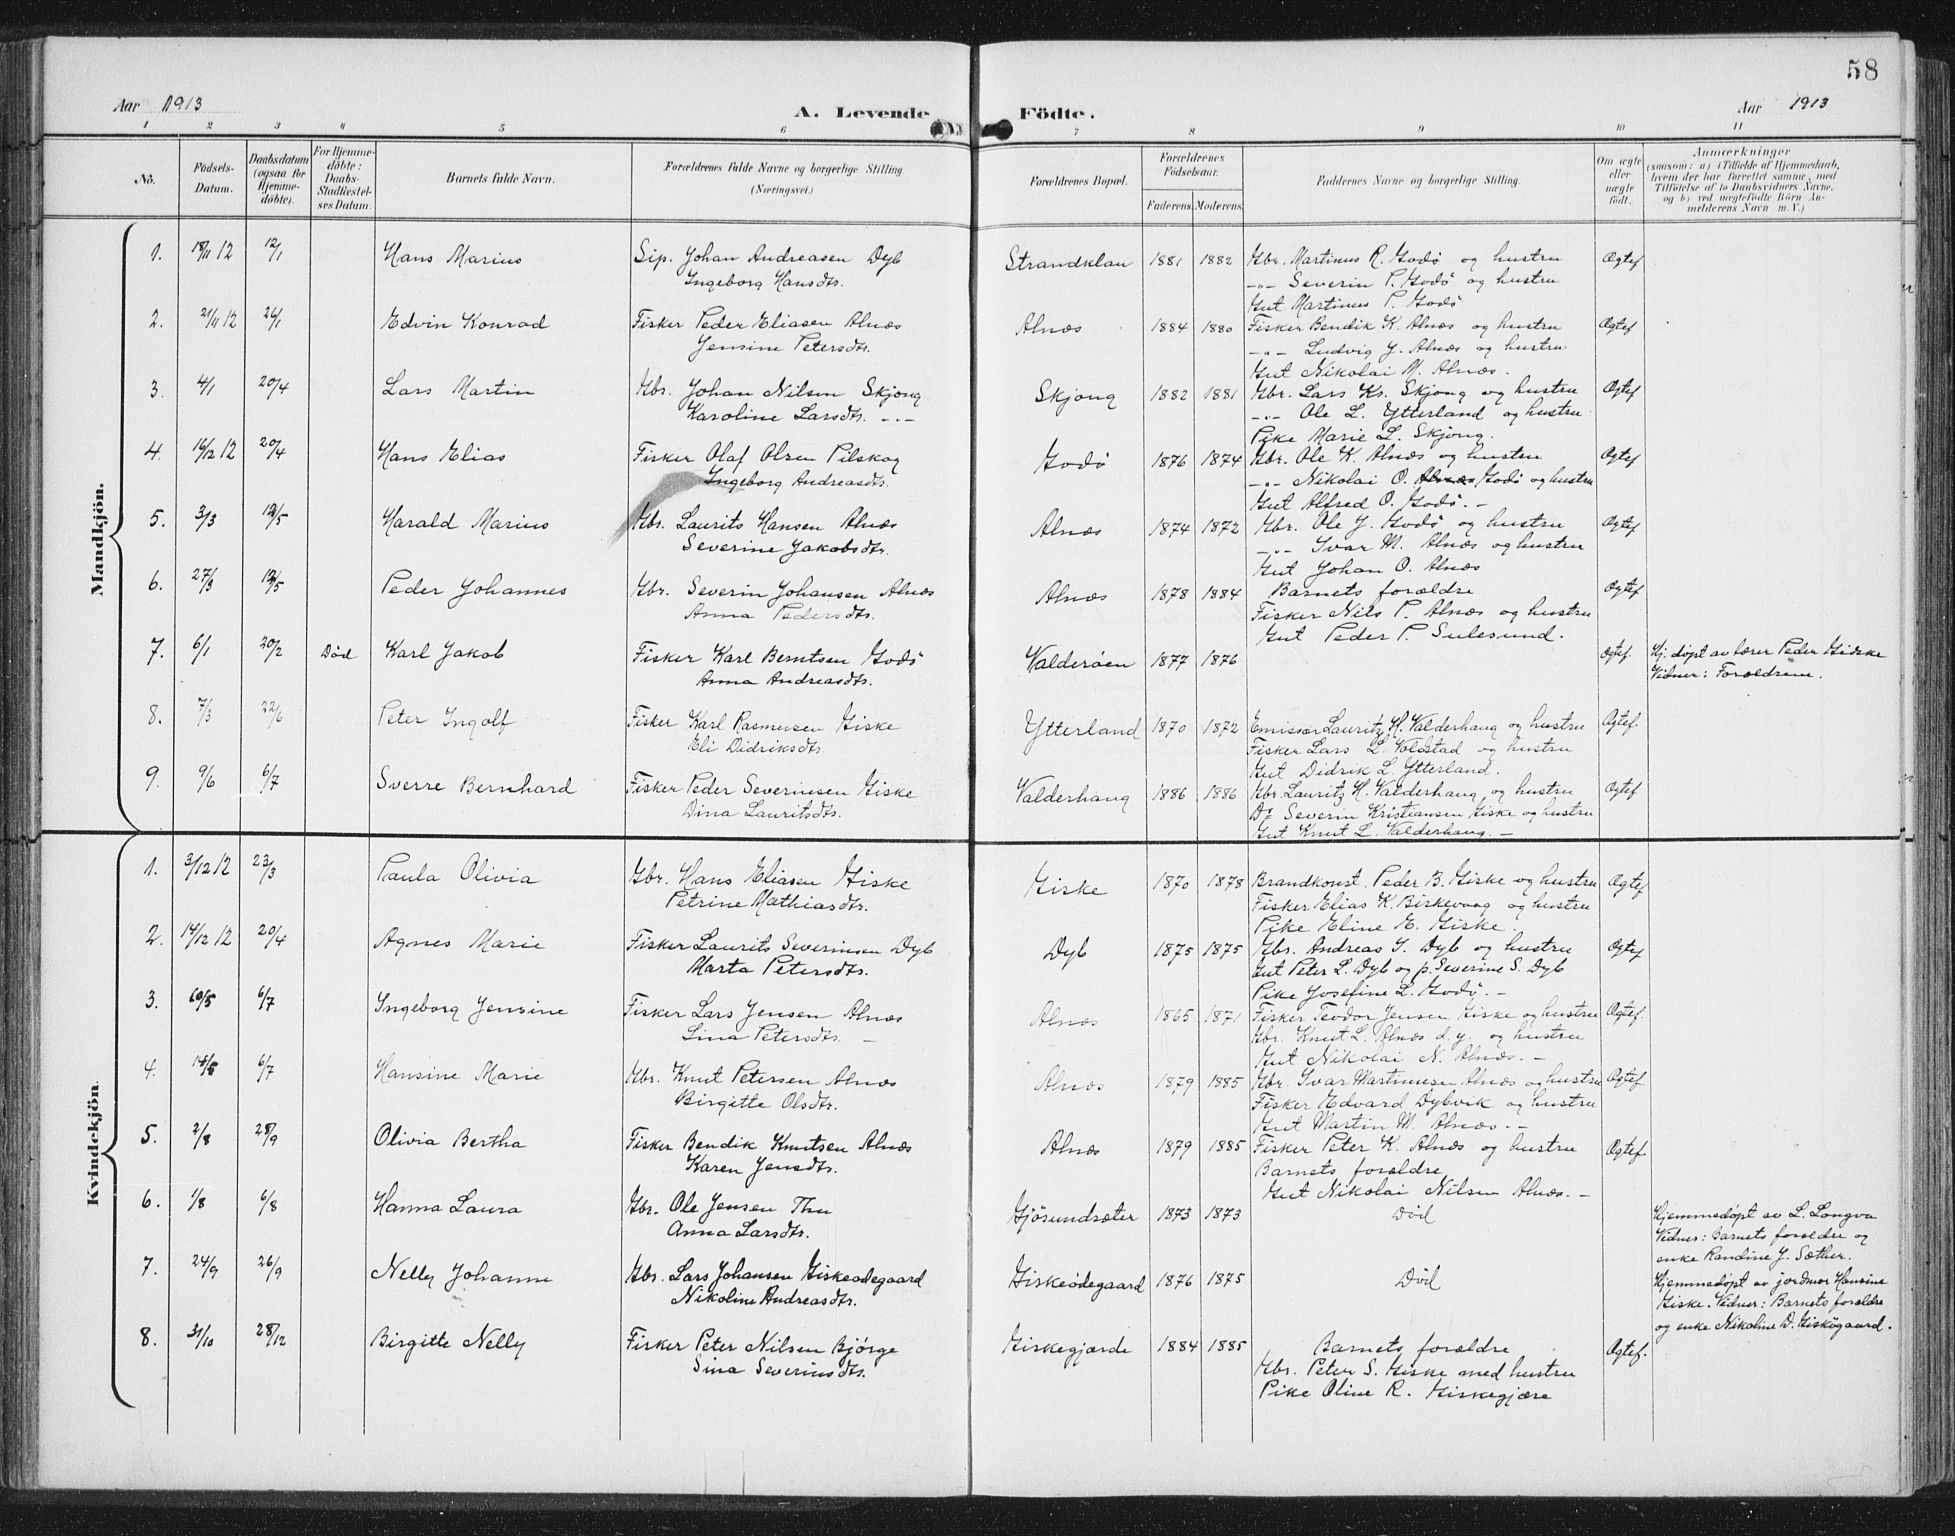 58
Aar 1913
A. Levende Födte.
Aar 1913
1 2 3 4 5 6 7 8 9 10 11
No. Födsels-Datum. Daabsdatum (ogsaa for Hjemme-döbte). For Hjemme-döbte: Daabs-Stadfæstelses Datum. Barnets fulde Navn. Forældrenes fulde Navne og borgerlige Stilling (Næringsvei.) Forældrenes Bopæl. Forældrenes Födselsaar. Faderens Moderens Faddernes Navne og borgerlige Stilling. Om ægte eller uægte födt. Anmærkninger (saasom: a) i Tilfælde af Hjemmedaab, hvem der har forrettet samme, med Tilföielse af to Daabsvidners Navne, og b) ved uægtefödte Börn Anmelderens Navn m. V.)
Mandkjön.
1. 18/11 12 12/1 Hans Marius Sip. Johan Andreasen Dyb Strandklau 1881 1882 Gbr. Martinus R. Godö og hustru Ogtef
Ingeborg Hansdtr. -"- Severin P. Godö og hustru
Gut Martinus P. Godö
2. 21/11 12 26/1 Edvin Konrad Fisker Peder Eliasen Alnæs Alnæs 1884 1880 Fisker Bendik K. Alnæs og hustru Ogtef
Jensine Petersdtr. -"- Ludvig J. Alnæs og hustru
Gut Nikolai M. Alnæs.
3. 4/1 20/4 Lars Martin Gbr. Johan Nilsen Skjong Skjong 1882 1881 Gbr. Lars Kr. Skjong og hustru Ogtef
Karoline Larsdtr. -"- -"- Ole L. Ytterland og hustru
Pike Marie L. Skjong.
4. 16/12 12 20/4 Hans Elias Fisker Olaf Olsen Pilskog Godö 1876 1874 Gbr. Ole K. Alnæs og hustru Ogtef
Ingeborg Andreasdtr. -"- Nikolai O. Alnæs Godö og hustru
Gut Alfred O. Godö. -
5. 3/3 12/5 Harald Marius Gbr. Laurits Hansen Alnæs Alnæs 1874 1872 Gbr. Ole J. Godö og hustru Ogtef
Severine Jakobsdtr. -"- Ivar M. Alnæs og hustru
Gut Johan O. Alnæs
6. 27/3 12/5 Peder Johannes Gbr. Severin Johansen Alnæs Alnæs 1878 1884 Barnets forældre Ogtef
Anna Pedersdtr. Fisker Nils P. Alnæs og hustru
Gut Peder P. Sulesund.
7. 6/1 20/2 Död Karl Jakob Fisker Karl Berntsen Godö Valderöen 1877 1876 Ogtef. Hj. døpt av lærer Peder Giske
Anna Andreasdtr. Vidner: Forældrene.
8. 7/3 22/6 Peter Ingolf Fisker Karl Rasmusen Giske Ytterland 1870 1872 Emissær Lauritz H. Valderhaug og hustru Ogtef.
Eli Didriksdtr. Fisker Lars L. Voldstad og hustru
Gut Didrik L. Ytterland.
9. 9/6 6/7 Sverre Bernhard Fisker Peder Severinsen Giske Valderhaug 1886 1886 Gbr. Lauritz H. Valderhaug og hustru Ogtef
Dina Lauritsdtr. Do Severin Kristiansen Giske og hustru
Gut Knut L. Valderhaug. -
Kvindekjön.
1. 3/12 12 23/3 Paula Olivia Gbr. Hans Eliasen Giske Giske 1870 1878 Brandkonst. Peder B. Giske og hustru Ogtef
Petrine Mathiasdtr. Fisker Elias K. Birkevaag og hustru
Pike Eline E. Giske.
2. 14/12 12 20/4 Agnes Marie Fisker Laurits Severinsen Dyb Dyb 1875 1875 Gbr. Andreas S. Dyb og hustru Ogtef
Marta Petersdtr. Gut Peter L. Dyb og p. Severine S. Dyb
Pike Josefine L. Godö. -
3. 10/5 6/7 Ingeborg Jensine Fisker Lars Jensen Alnæs Alnæs 1865 1871 Fisker Teodor Jensen Giske og hustru Ogtef.
Lina Petersdtr. - Gbr. Knut L. Alnæs d. y. og hustru
Gut Nikolai N. Alnæs. -
4. 14/5 6/7 Hansine Marie Gbr. Knut Petersen Alnæs Alnæs 1879 1885 Gbr. Ivar Martinusen Alnæs og hustru Ogtef
Birgitte Olsdtr. Fisker Edvard Dybvik og hustru
Gut Martin M. Alnæs. -
5. 2/8 28/9 Olivia Bertha Fisker Bendik Knutsen Alnæs Alnæs 1879 1885 Fisker Peter K. Alnæs og hustru Ogtef
Karen Jensdtr. Barnets forældre
Gut Nikolai Nilsen Alnæs. -
6. 1/8 6/8 Hanna Laura Gbr. Ole Jensen Thu Gjösundsæter 1873 1873 Död Hjemmedøpt av L. Longva
Anna Larsdtr. Vidner: Barnets forældre og
enke Randine J. Sæther.
7. 24/9 26/9 Nelly Johanne Gbr. Lars Johansen Giskeødegaard Giskeødegaard 1876 1875 Död Hjemmedøpt av jordmor Hansine
Nikoline Andreasdtr. Giske. Vidner: Barnets forældre
og enke Nikoline D. Giskøgaard.
8. 31/10 28/12 Birgitte Nelly Fisker Peter Nilsen Bjørge Giskegjærde 1884 1885 Barnets forældre Ogtef.
Sina Severinsdtr. Gbr. Peter S. Giske med hustru
Pike Oline R. Giskegjære